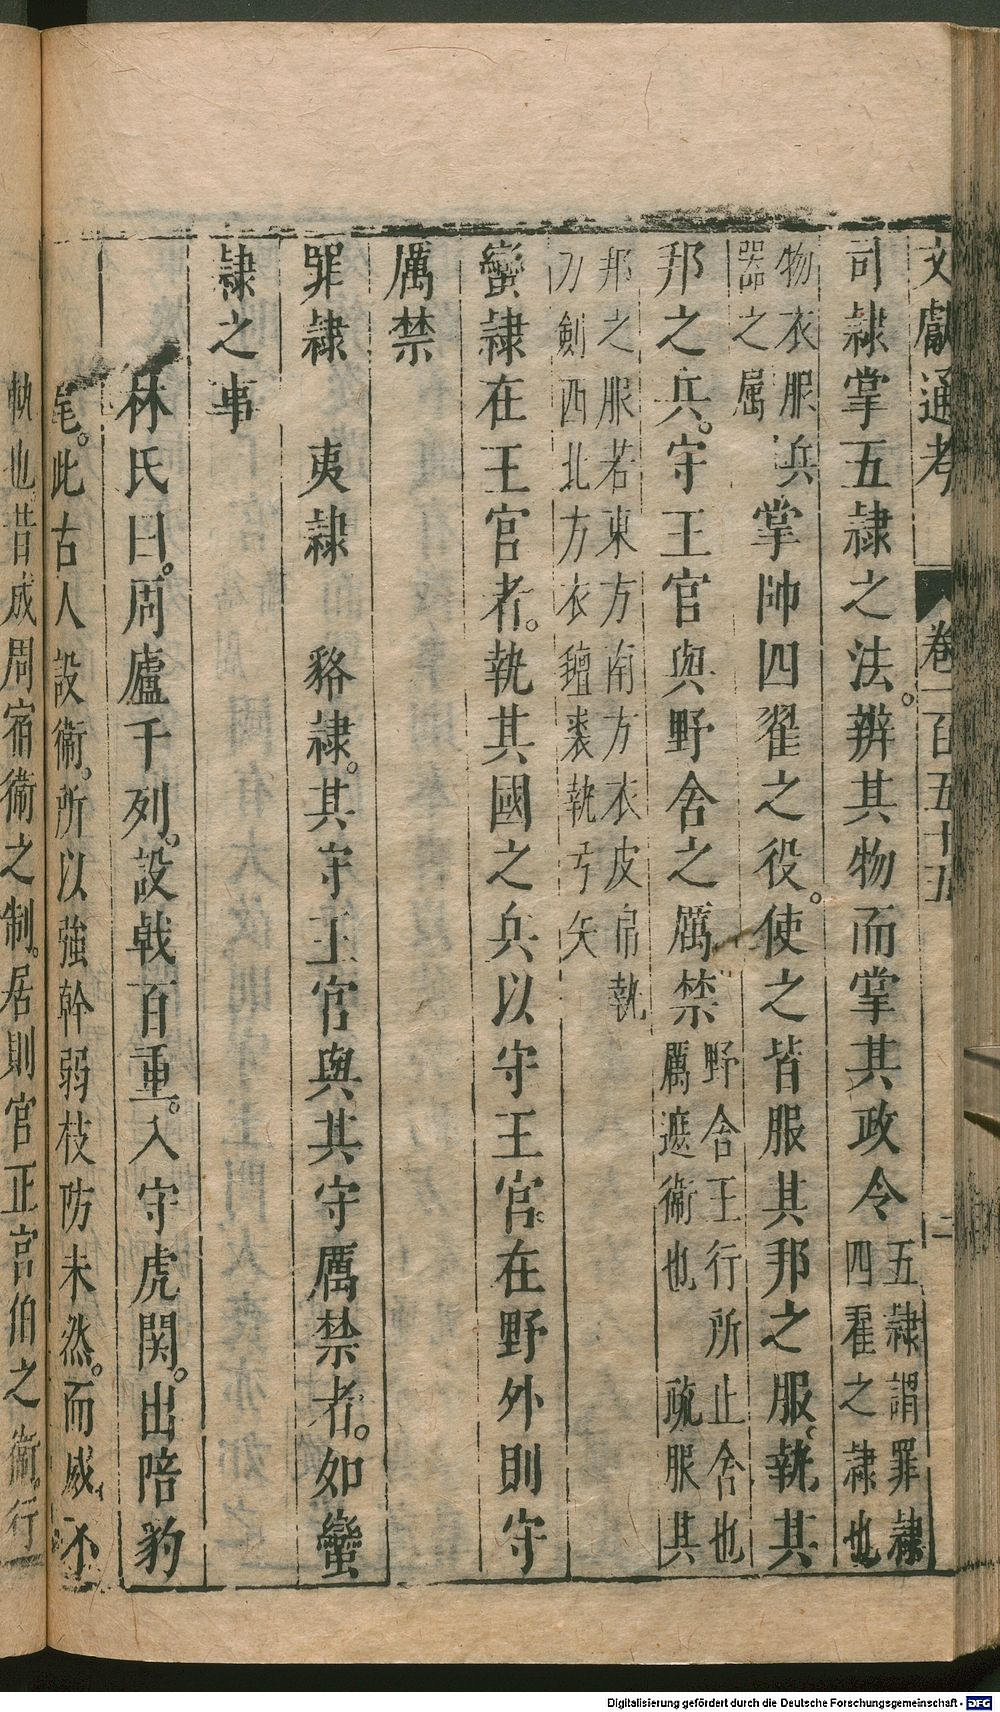 文獻通考 卷一百五十五 二
司隷掌五隷之法。辨其物而掌其政令 五隷謂罪隷四翟之隷也
物衣服兵器之屬 掌帥四翟之役。使之皆服其邦之服、執其
邦之兵。守王官與野舍之厲禁 野舍王行所止舍也厲遮衞也 疏服其
邦之服若東方南方衣皮帛執刀劍西北方衣氊裘執弓矢
蠻隷在王官者。執其國之兵以守王宮。在野外則守
厲禁
罪隷 夷隷 貉隷。其守王官與其守厲禁者。如蠻
隷之事
林氏曰。周廬千列。設戟百重。入守虎関。出陪豹
尾。此古人設衞。所以強幹弱枝防未然。而威不
軌也昔成周宿衞之制。居則宫正宫伯之衞。行
Digitalisierung gefördert durch die Deutsche Forschungsgemeinschaft - DFG